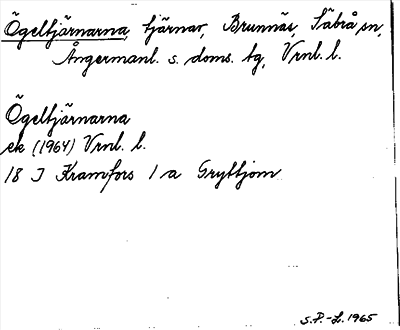 Ögeltjärnarna, tjärnar, Brunnäs, Säbrå sn,
Ångermanl. s. doms. tg, Vrnl. l.
Ögeltjärnarna
ek (1964) Vrnl. l.
18 J Kramfors 1 a Gryttjom
S.P.-L. 1965